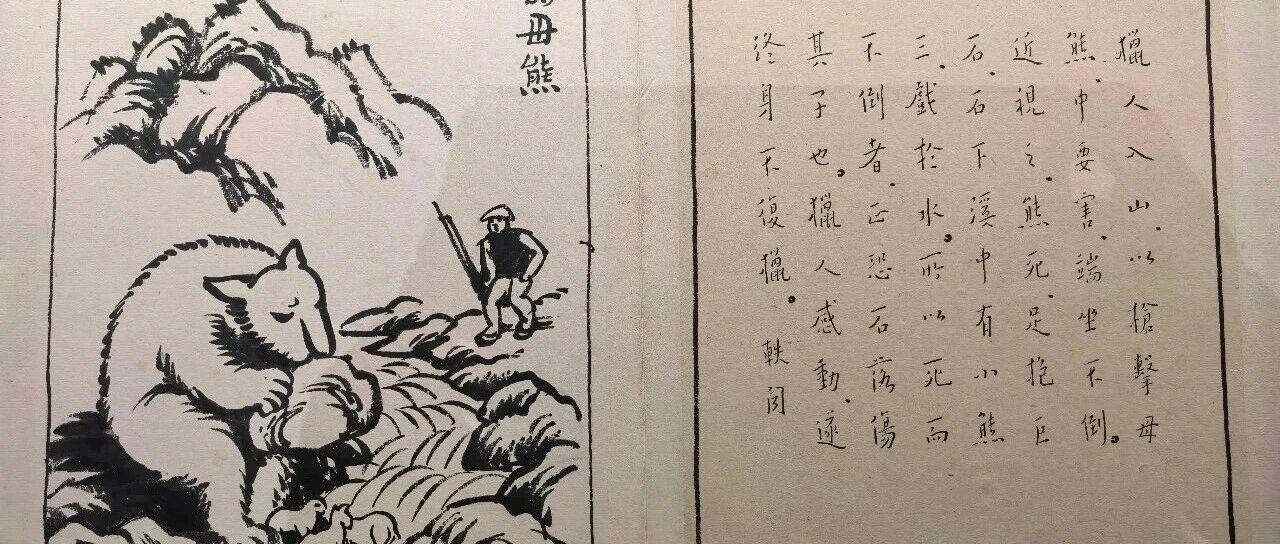 母熊
獵人入山、以槍擊母
熊、中要害、端坐不倒。
近視之、熊死、足抱巨
石、石下溪中有小熊
三、戲於水。所以死而
不倒者、正恐石落傷
其子也。獵人感動、遂
終身不復獵。 軼聞